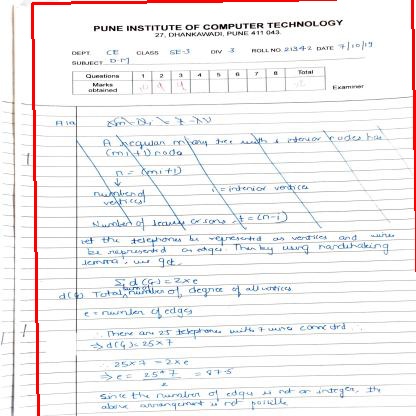 PUNE INSTITUTE OF COMPUTER TECHNOLOGY
27, DHANKAWADI, PUNE 411 043.
DEPT. CE CLASS SE-3 DIV 3 ROLL NO. 21342 DATE 7/10/19
SUBJECT DM
Questions 1 2 3 4 5 6 7 8 Total
Marks obtained
Examiner
A regular m-ary tree with i interior nodes has
(mi+1) node
n = (mi+1)
number of vertices i = interior vertices
Number of leaves or sons, t = (n-i)
Let the telephones be represented as vertices and wires
be represented as edges. Then by using handshaking
lemma, we get,
Σ d(G) = 2xe
d(G) Total number of degree of all vertices
e = number of edges
There are 25 telephones with 7 wires connected
⇒ d(G) = 25x7
25x7 = 2xe
⇒ e = 25*7 / 2 = 87.5
Since the number of edges is not an integer, the
above arrangement is not possible